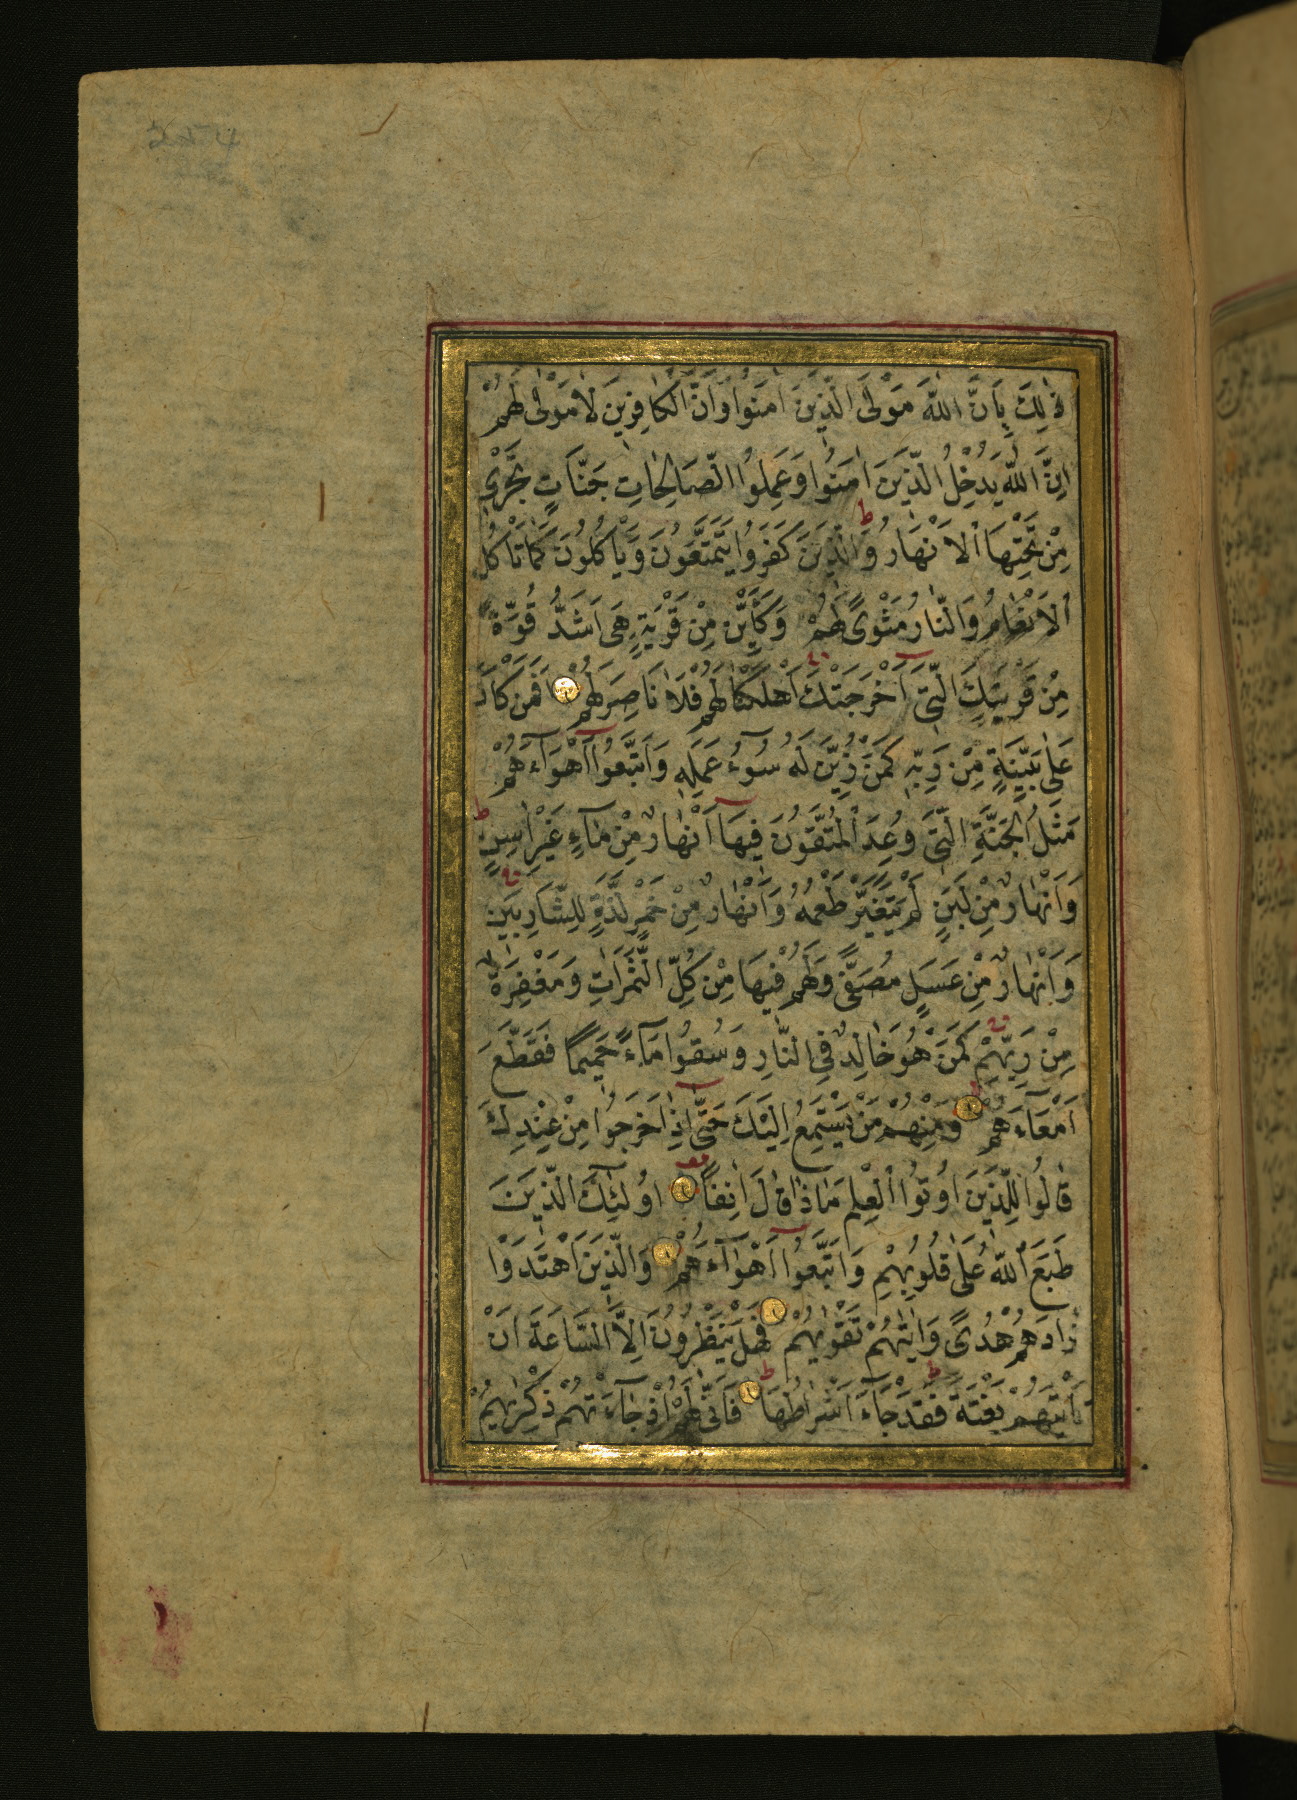 ذٰلِكَ بِاَنَّ اللّٰهَ مَوْلَى الَّذِينَ اٰمَنُوا وَاَنَّ الْكَافِرِينَ لَا مَوْلٰى لَهُمْ
اِنَّ اللّٰهَ يُدْخِلُ الَّذِينَ اٰمَنُوا وَعَمِلُوا الصَّالِحَاتِ جَنَّاتٍ تَجْرِى
مِنْ تَحْتِهَا الْاَنْهَارُ ط وَالَّذِينَ كَفَرُوا يَتَمَتَّعُونَ وَيَاْكُلُونَ كَمَا تَاْكُلُ
الْاَنْعَامُ وَالنَّارُ مَثْوًى لَهُمْ وَكَاَيِّنْ مِنْ قَرْيَةٍ هِىَ اَشَدُّ قُوَّةً
مِنْ قَرْيَتِكَ الَّتِى اَخْرَجَتْكَ اَهْلَكْنَاهُمْ فَلَا نَاصِرَ لَهُمْ اَفَمَنْ كَانَ
عَلٰى بَيِّنَةٍ مِنْ رَبِّهِ كَمَنْ زُيِّنَ لَهُ سُوۤءُ عَمَلِهِ وَاتَّبَعُوا اَهْوَاۤءَهُمْ
مَثَلُ الْجَنَّةِ الَّتِى وُعِدَ الْمُتَّقُونَ فِيهَا اَنْهَارٌ مِنْ مَاۤءٍ غَيْرِ اٰسِنٍ
وَاَنْهَارٌ مِنْ لَبَنٍ لَمْ يَتَغَيَّرْ طَعْمُهُ وَاَنْهَارٌ مِنْ خَمْرٍ لَذَّةٍ لِلشَّارِبِينَ
وَاَنْهَارٌ مِنْ عَسَلٍ مُصَفًّى وَلَهُمْ فِيهَا مِنْ كُلِّ الثَّمَرَاتِ وَمَغْفِرَةٌ
مِنْ رَبِّهِمْ كَمَنْ هُوَ خَالِدٌ فِى النَّارِ وَسُقُوا مَاۤءً حَمِيمًا فَقَطَّعَ
اَمْعَاۤءَهُمْ وَمِنْهُمْ مَنْ يَسْتَمِعُ اِلَيْكَ حَتّٰى اِذَا خَرَجُوا مِنْ عِنْدِكَ
قَالُوا لِلَّذِينَ اُوتُوا الْعِلْمَ مَاذَا قَالَ اٰنِفًا اُولٰۤئِكَ الَّذِينَ
طَبَعَ اللّٰهُ عَلٰى قُلُوبِهِمْ وَاتَّبَعُوا اَهْوَاۤءَهُمْ وَالَّذِينَ اهْتَدَوْا
زَادَهُمْ هُدًى وَاٰتٰيهُمْ تَقْوٰيهُمْ فَهَلْ يَنْظُرُونَ اِلَّا السَّاعَةَ اَنْ
تَاْتِيَهُمْ بَغْتَةً ط فَقَدْ جَاۤءَ اَشْرَاطُهَا ط فَاَنّٰى لَهُمْ اِذَا جَاۤءَتْهُمْ ذِكْرٰيهُمْ